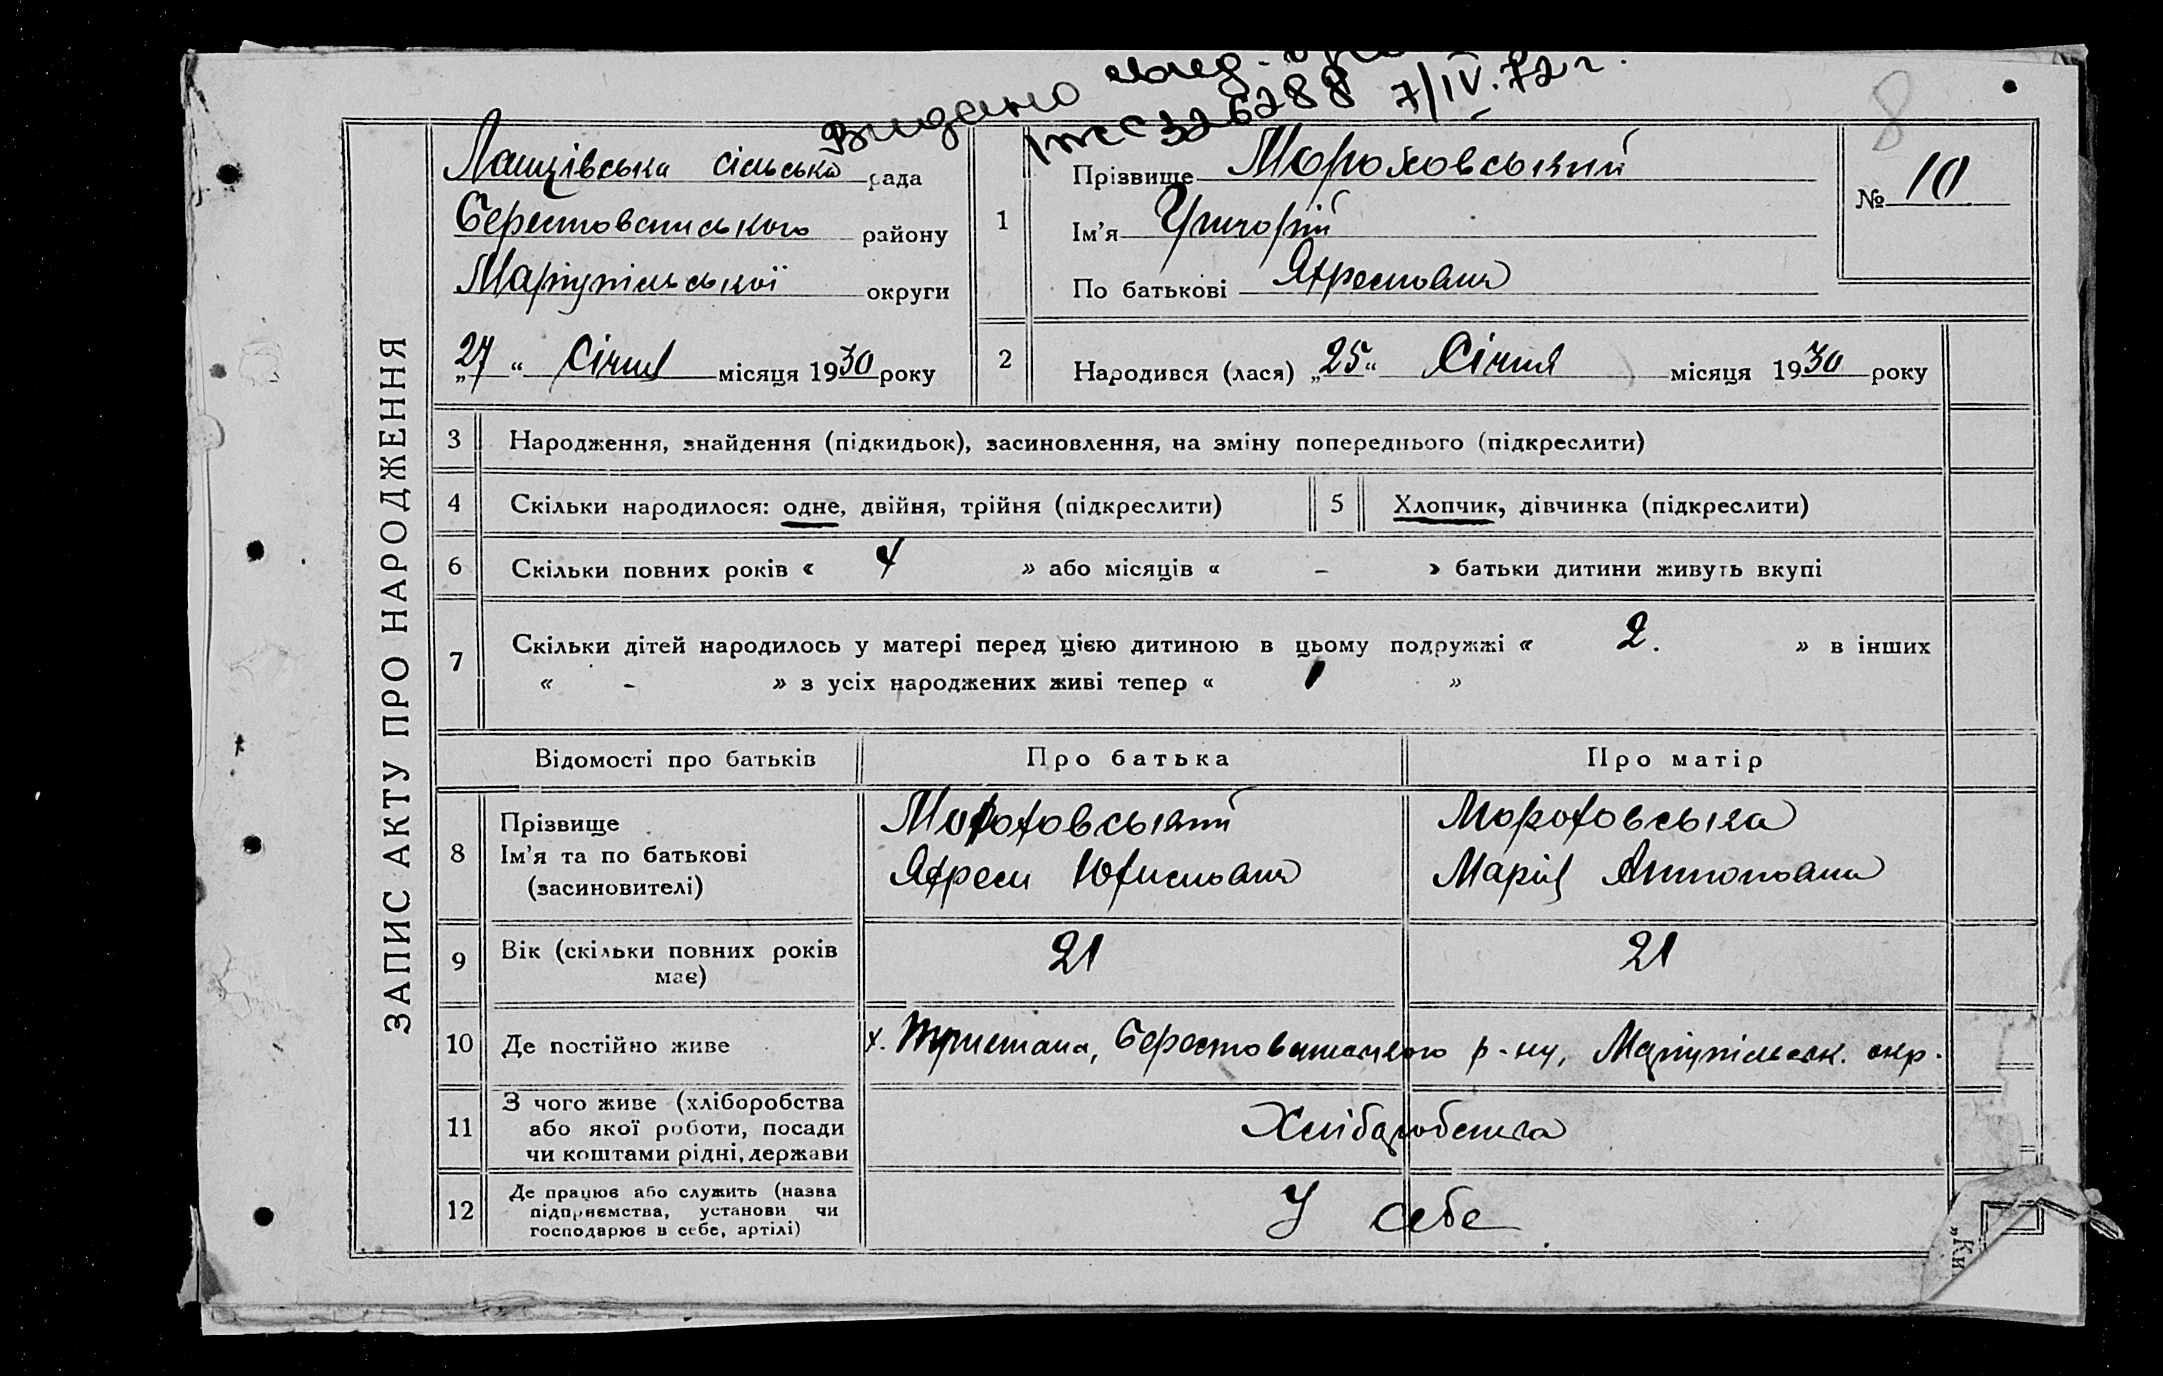 Видано
7/IV.72 г.
8
ЗАПИС АКТУ ПРО НАРОДЖЕННЯ
Лащівська сільська рада
Берестоватського району
Маріупільської округи
„27“ Січня місяця 1930 року
1
Прізвище Мороховський
Ім'я Григорій
По батькові
№ 10
2
Народився (лася) „25“ Січня місяця 1930 року
3 Народження, знайдення (підкидьок), засиновлення, на зміну попереднього (підкреслити)
4 Скільки народилося: одне, двійня, трійня (підкреслити)
5 Хлопчик, дівчинка (підкреслити)
6 Скільки повних років « 4 » або місяців « – » батьки дитини живуть вкупі
7 Скільки дітей народилось у матері перед цією дитиною в цьому подружжі « 2. » в інших
« - » з усіх народжених живі тепер « »
Відомості про батьків Про батька Про матір
8
Прізвище
Ім'я та по батькові
(засиновителі)
Мороховський
Мороховська
Марія Антонівна
9 Вік (скільки повних років
має)
21 21
10 Де постійно живе х. Берестоватського р-ну, Маріупільськ. окр.
11
З чого живе (хліборобства
або якої роботи, посади
чи коштами рідні, держави
Хліборобства
12
Де працює або служить (назва
підприємства, установи чи
господарює в себе, артілі)
У себе